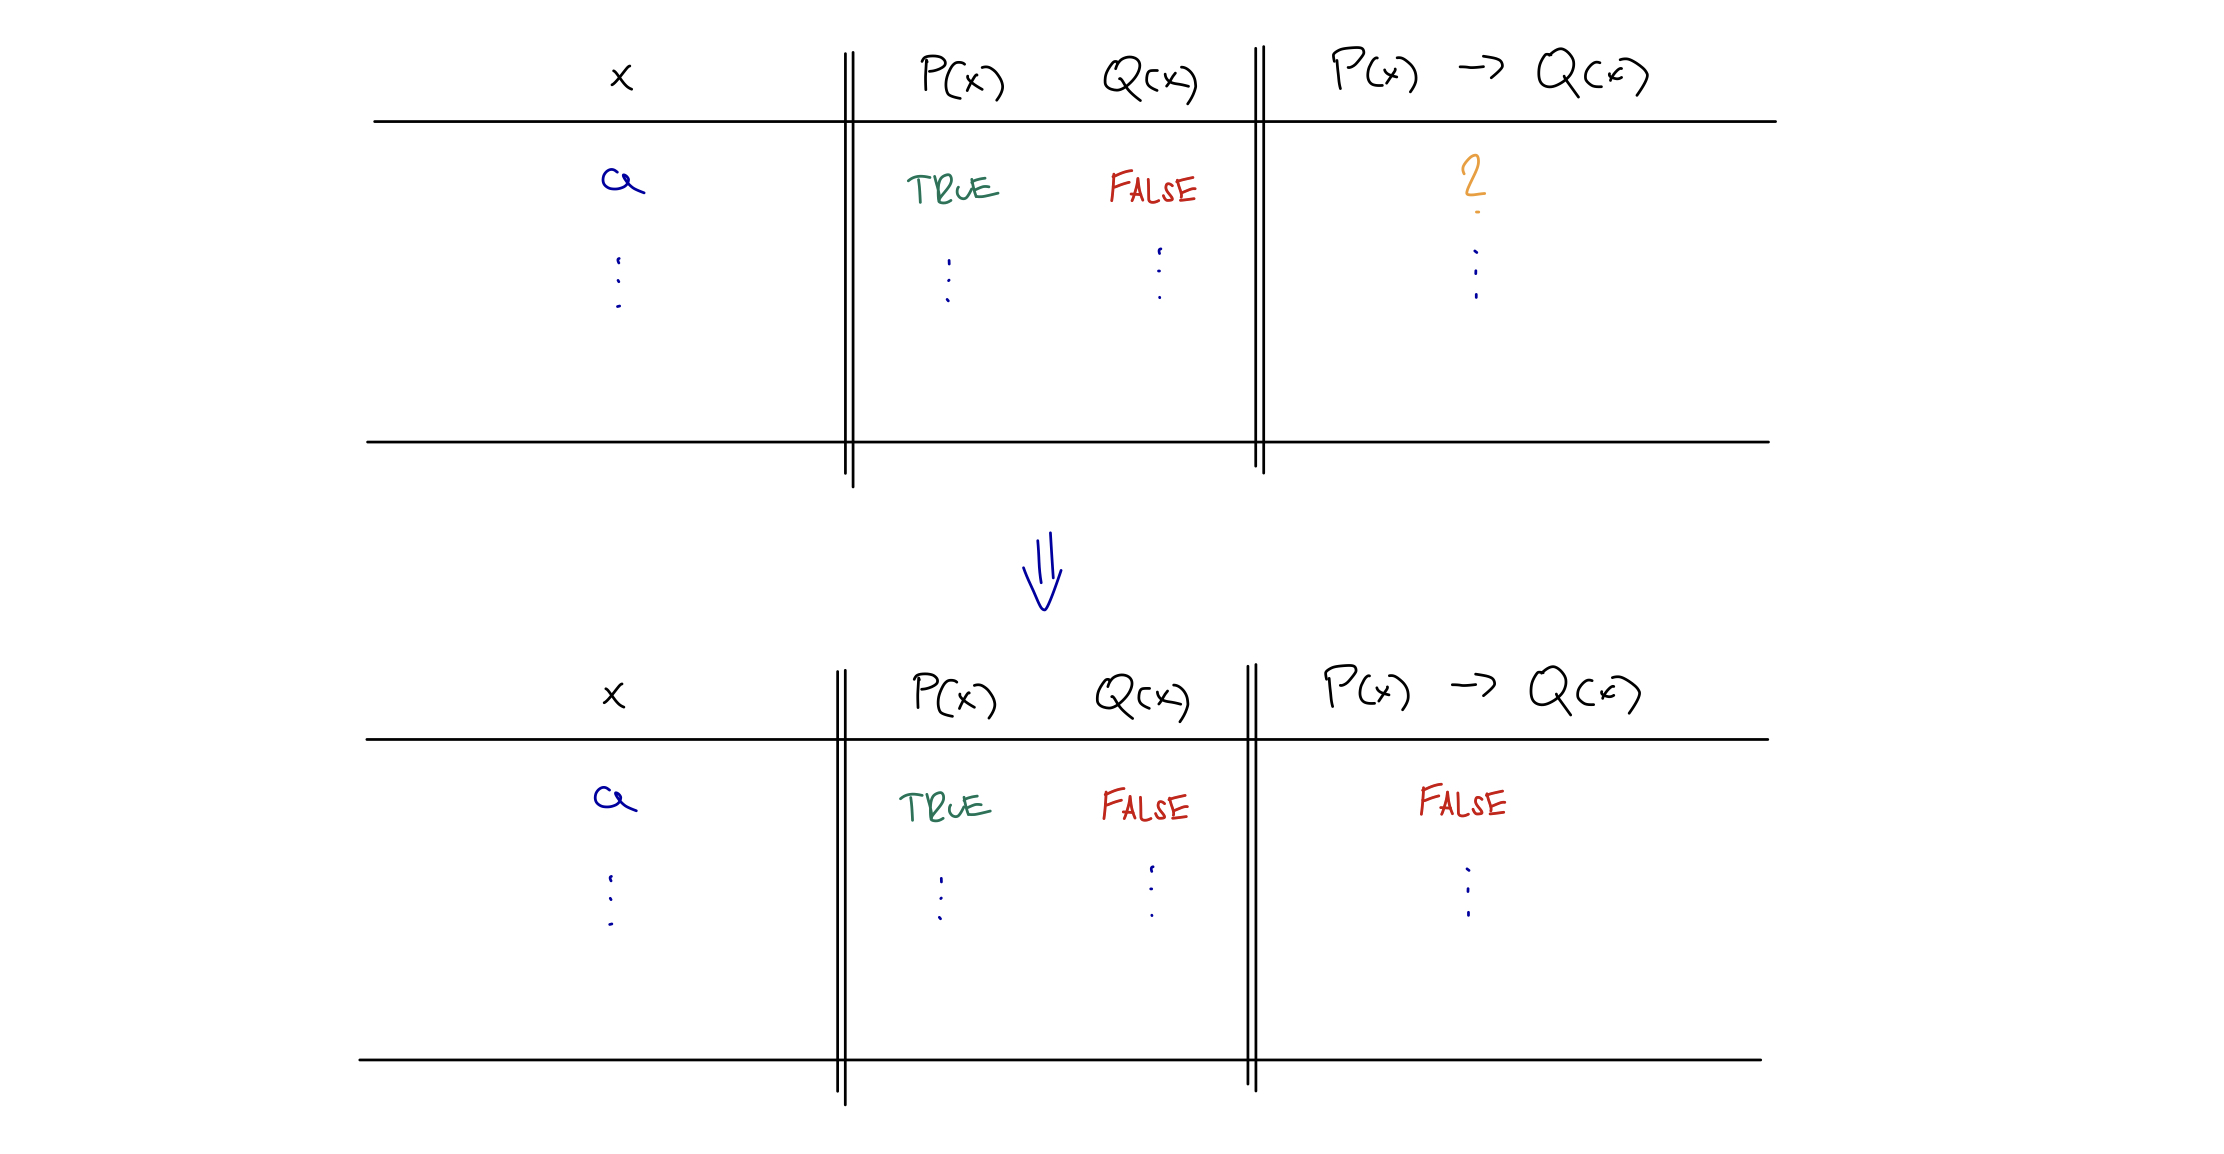 x P(x) Q(x) P(x) → Q(x)
a TRUE FALSE ?
⋮ ⋮ ⋮ ⋮
⇓
x P(x) Q(x) P(x) → Q(x)
a TRUE FALSE FALSE
⋮ ⋮ ⋮ ⋮